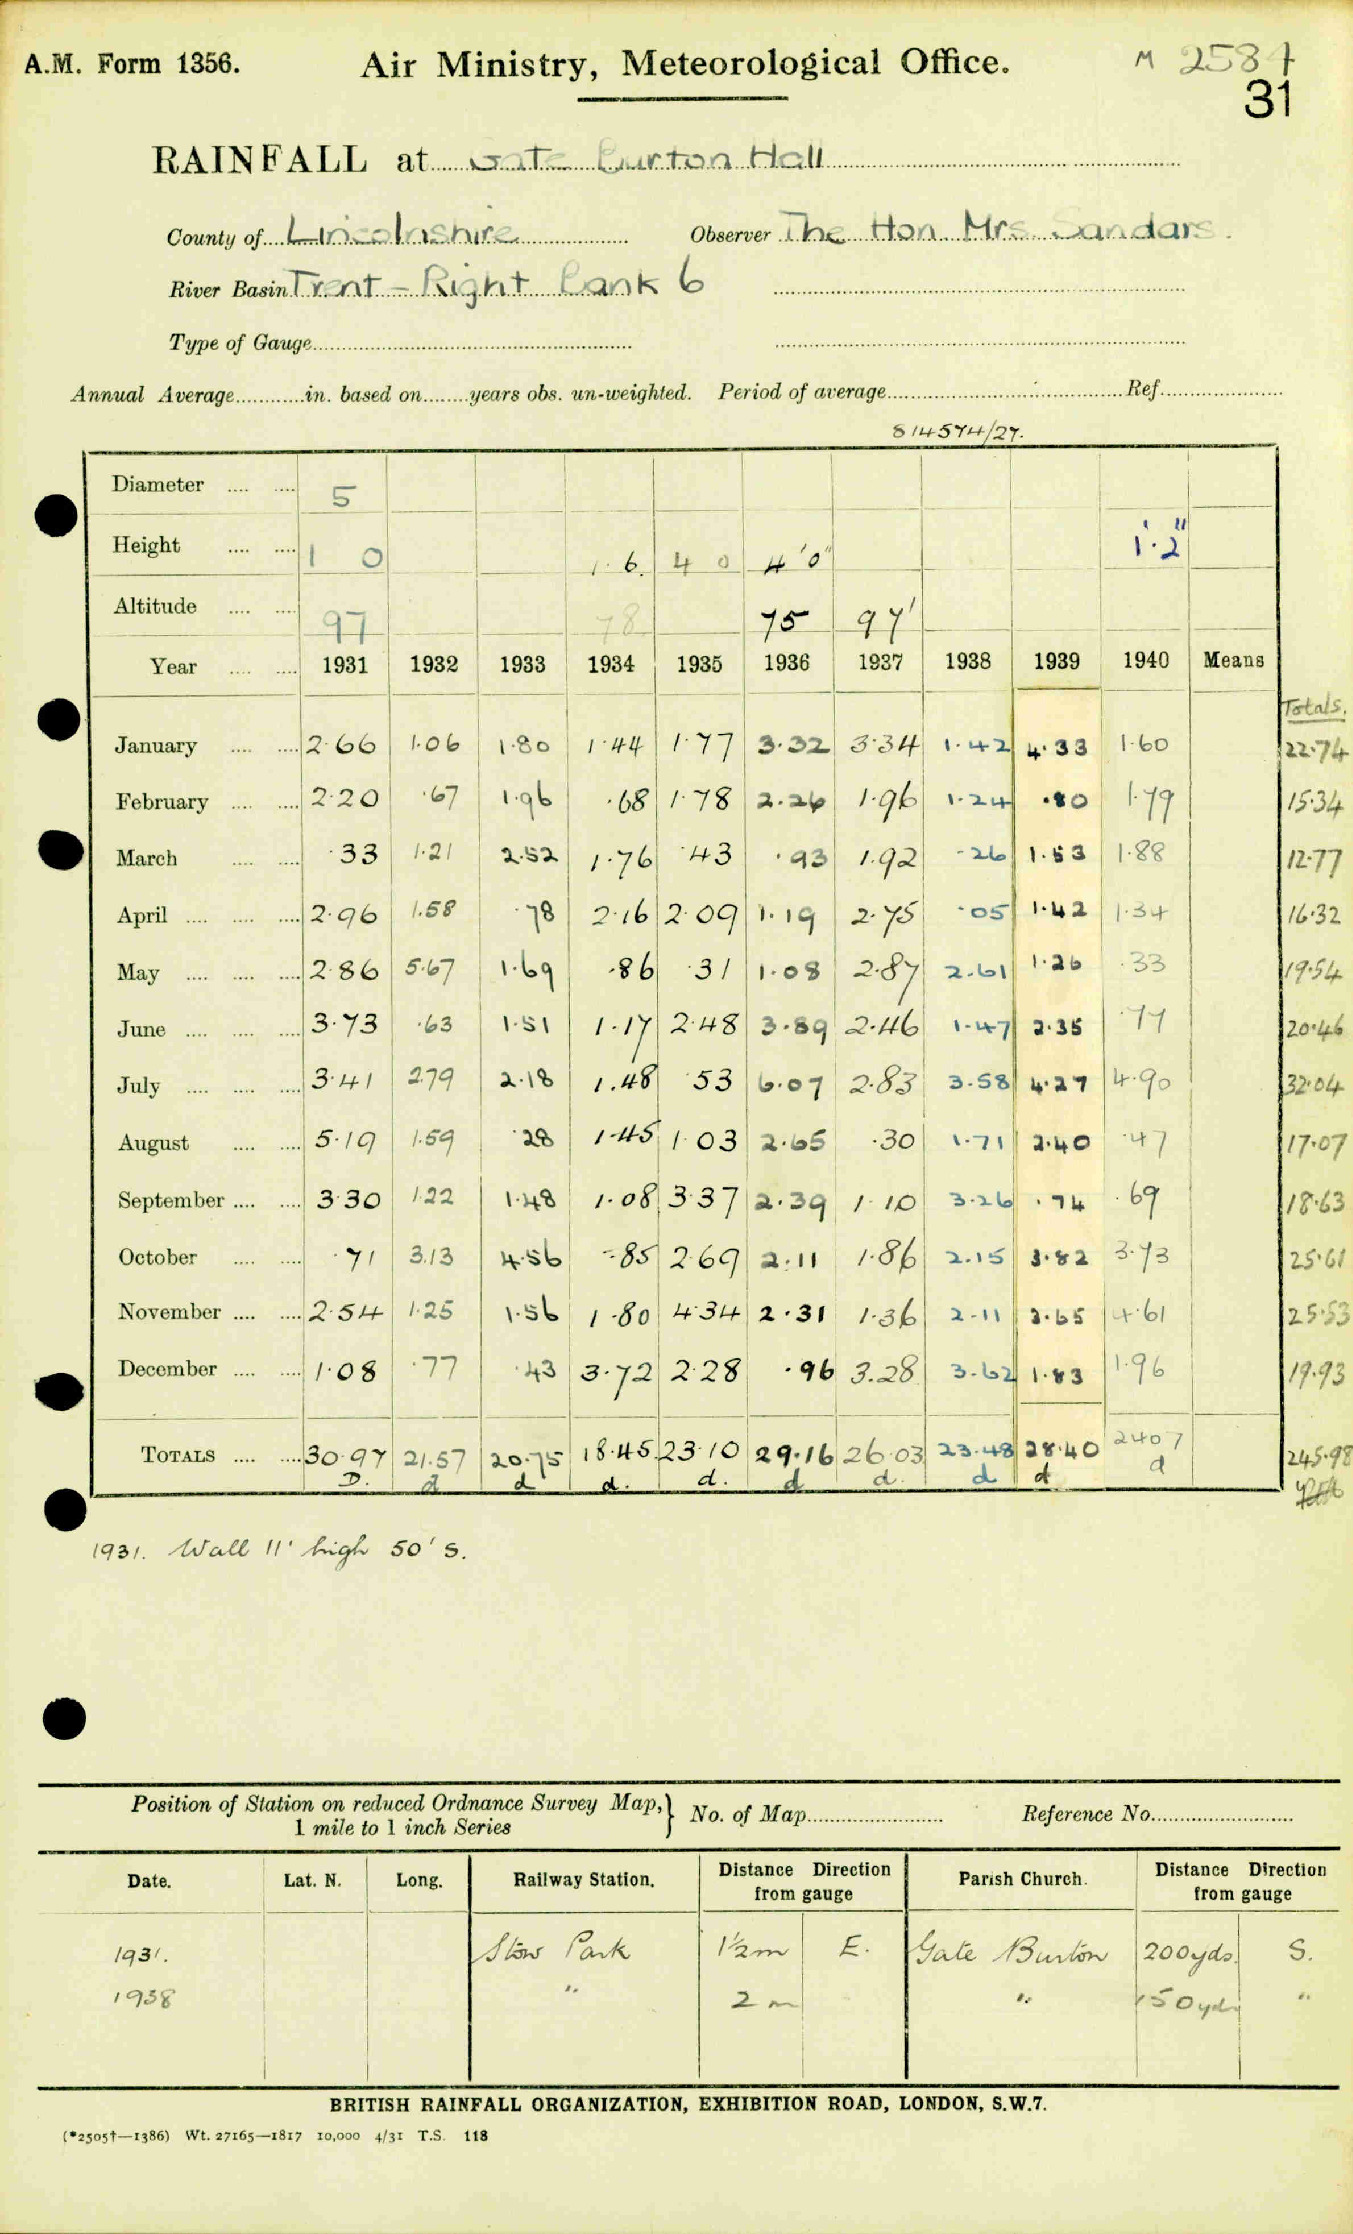 A.M. Form 1356. Air Ministry, Meteorological Office. M 2584
31
RAINFALL at Gate Burton Hall
County of Lincolnshire Observer The Hon Mrs Sandars.
River Basin Trent - Right Bank 6
Type of Gauge
Annual Average in. based on years obs. un-weighted. Period of average Ref.
814574/27.
Diameter 5
Height 1 0 1 6. 4 0 4'0" 1'.2"
Altitude 97 78 75 97'
Year 1931 1932 1933 1934 1935 1936 1937 1938 1939 1940 Means
Totals.
January 2.66 1.06 1.80 1.44 1.77 3.32 3.34 1.42 4.33 1.60 22.74
February 2.20 .67 1.96 .68 1.78 2.26 1.96 1.24 .80 1.79 15.34
March .33 1.21 2.52 1.76 .43 .93 1.92 .26 1.53 1.88 12.77
April 2.96 1.58 .78 2.16 2.09 1.19 2.75 .05 1.42 1.34 16.32
May 2.86 5.67 1.69 .86 .31 1.08 2.87 2.61 1.26 .33 19.54
June 3.73 .63 1.51 1.17 2.48 3.89 2.46 1.47 2.35 .77 20.46
July 3.41 2.79 2.18 1.48 .53 6.07 2.83 3.58 4.27 4.90 32.04
August 5.19 1.59 .28 1.45 1.03 2.65 .30 1.71 2.40 .47 17.07
September 3.30 1.22 1.48 1.08 3.37 2.39 1.10 3.26 .74 .69 18.63
October .71 3.13 4.56 .85 2.69 2.11 1.86 2.15 3.82 3.73 25.61
November 2.54 1.25 1.56 1.80 4.34 2.31 1.36 2.11 3.65 4.61 25.53
December 1.08 .77 .43 3.72 2.28 .96 3.28 3.62 1.83 1.96 19.93
TOTALS 30.97 21.57 20.75 18.45 23.10 29.16 26.03 23.48 28.40 2407 245.98
D. d d d. d. d d. d d d
1931. Wall 11' high 50' S.
Position of Station on reduced Ordnance Survey Map, } No. of Map Reference No.
1 mile to 1 inch Series
Date. Lat. N. Long. Railway Station. Distance Direction from gauge Parish Church. Distance Direction from gauge
1931. Stow Park 1½m E. Gate Burton 200yds. S.
1938 " 2 m " 150yds "
BRITISH RAINFALL ORGANIZATION, EXHIBITION ROAD, LONDON, S.W.7.
(*2505†—1386) Wt. 27165—1817 10,000 4/31 T.S. 118